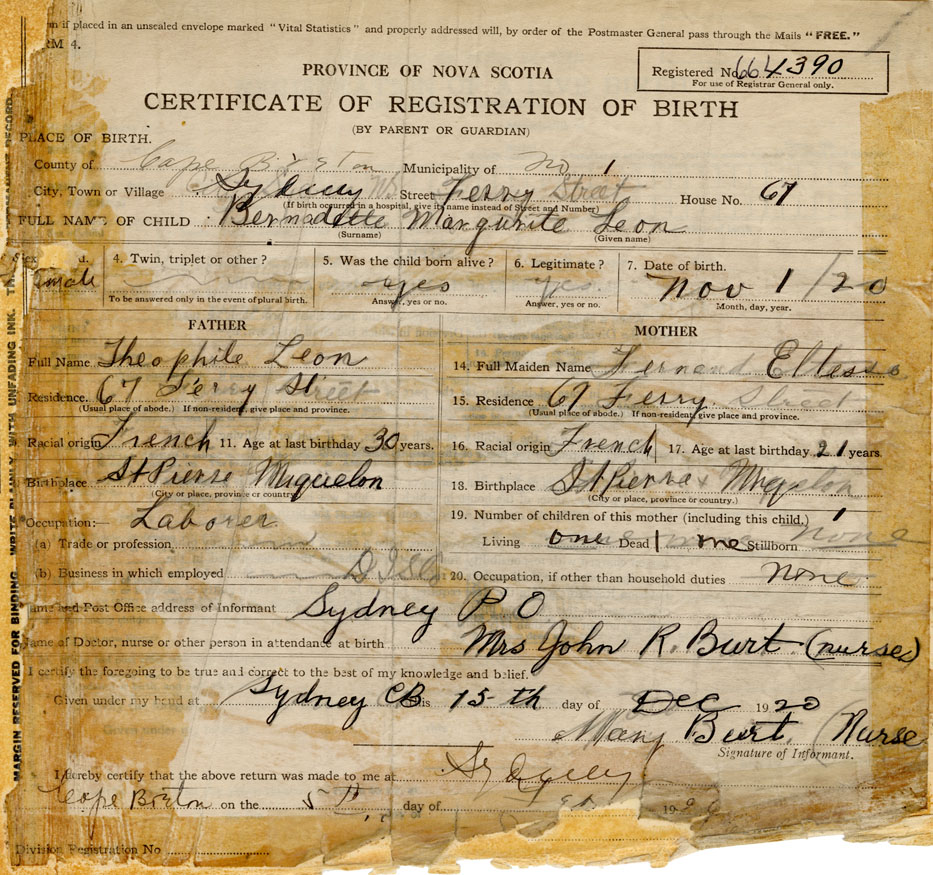 if placed in an unsealed envelope marked "Vital Statistics" and properly addressed will, by order of the Postmaster General pass through the Mails "FREE."
RM 4.
PROVINCE OF NOVA SCOTIA
Registered No. 664390
For use of Registrar General only.
CERTIFICATE OF REGISTRATION OF BIRTH
(BY PARENT OR GUARDIAN)
PLACE OF BIRTH.
County of Cape Breton Municipality of No 1
City, Town or Village Sydney Street Ferry Street House No. 67
(If birth occurred in a hospital, give its name instead of Street and Number)
FULL NAME OF CHILD Bernadette Margurite Leon
(Surname) (Given name)
4. Twin, triplet or other? 5. Was the child born alive? 6. Legitimate? 7. Date of birth.
male yes yes. Nov 1/20
To be answered only in the event of plural birth. Answer, yes or no. Answer, yes or no. Month, day, year.
FATHER MOTHER
Full Name Theophile Leon 14. Full Maiden Name
Residence. 67 Ferry Street 15. Residence 67 Ferry Street
(Usual place of abode.) If non-resident, give place and province. (Usual place of abode.) If non-resident, give place and province.
Racial origin French 11. Age at last birthday 30 years. 16. Racial origin French 17. Age at last birthday 21 years.
Birthplace St Pierre Miquelon 18. Birthplace St Pierre Miquelon
(City or place, province or country) (City or place, province or country.)
Occupation:— Laborer 19. Number of children of this mother (including this child.) 1
(a) Trade or profession Living one Dead none Stillborn none
(b) Business in which employed 20. Occupation, if other than household duties none
Name and Post Office address of Informant Sydney P O
Name of Doctor, nurse or other person in attendance at birth Mrs John R. Burt (nurses)
I certify the foregoing to be true and correct to the best of my knowledge and belief.
Given under my hand at Sydney CB this 15-th day of Dec 1920
Mary Burt. (Nurse
Signature of Informant.
I hereby certify that the above return was made to me at Sydney
Cape Breton on the day of 19
Division Registration No
MARGIN RESERVED FOR BINDING. WRITE PLAINLY WITH UNFADING INK. THIS IS A PERMANENT RECORD.